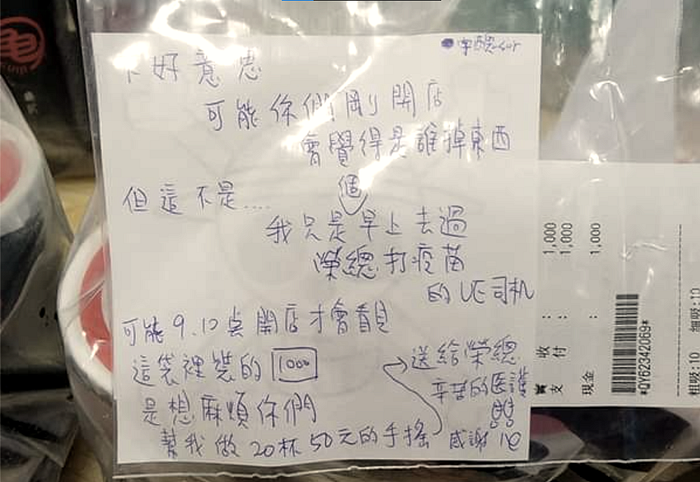 字醜sorry
不好意思
可能你們剛開店
會覺得是誰掉東西
但這不是....
我只是個早上去過
榮總打疫苗
的UE司机
可能9.10点開店才會看見
這袋裡裝的 1000
是想麻煩你們
幫我做20杯50元的手搖
送給榮總
辛苦的医護
感謝
收 : 1,000
支付 : 1,000
現金 : 1,000
*QY62342069*